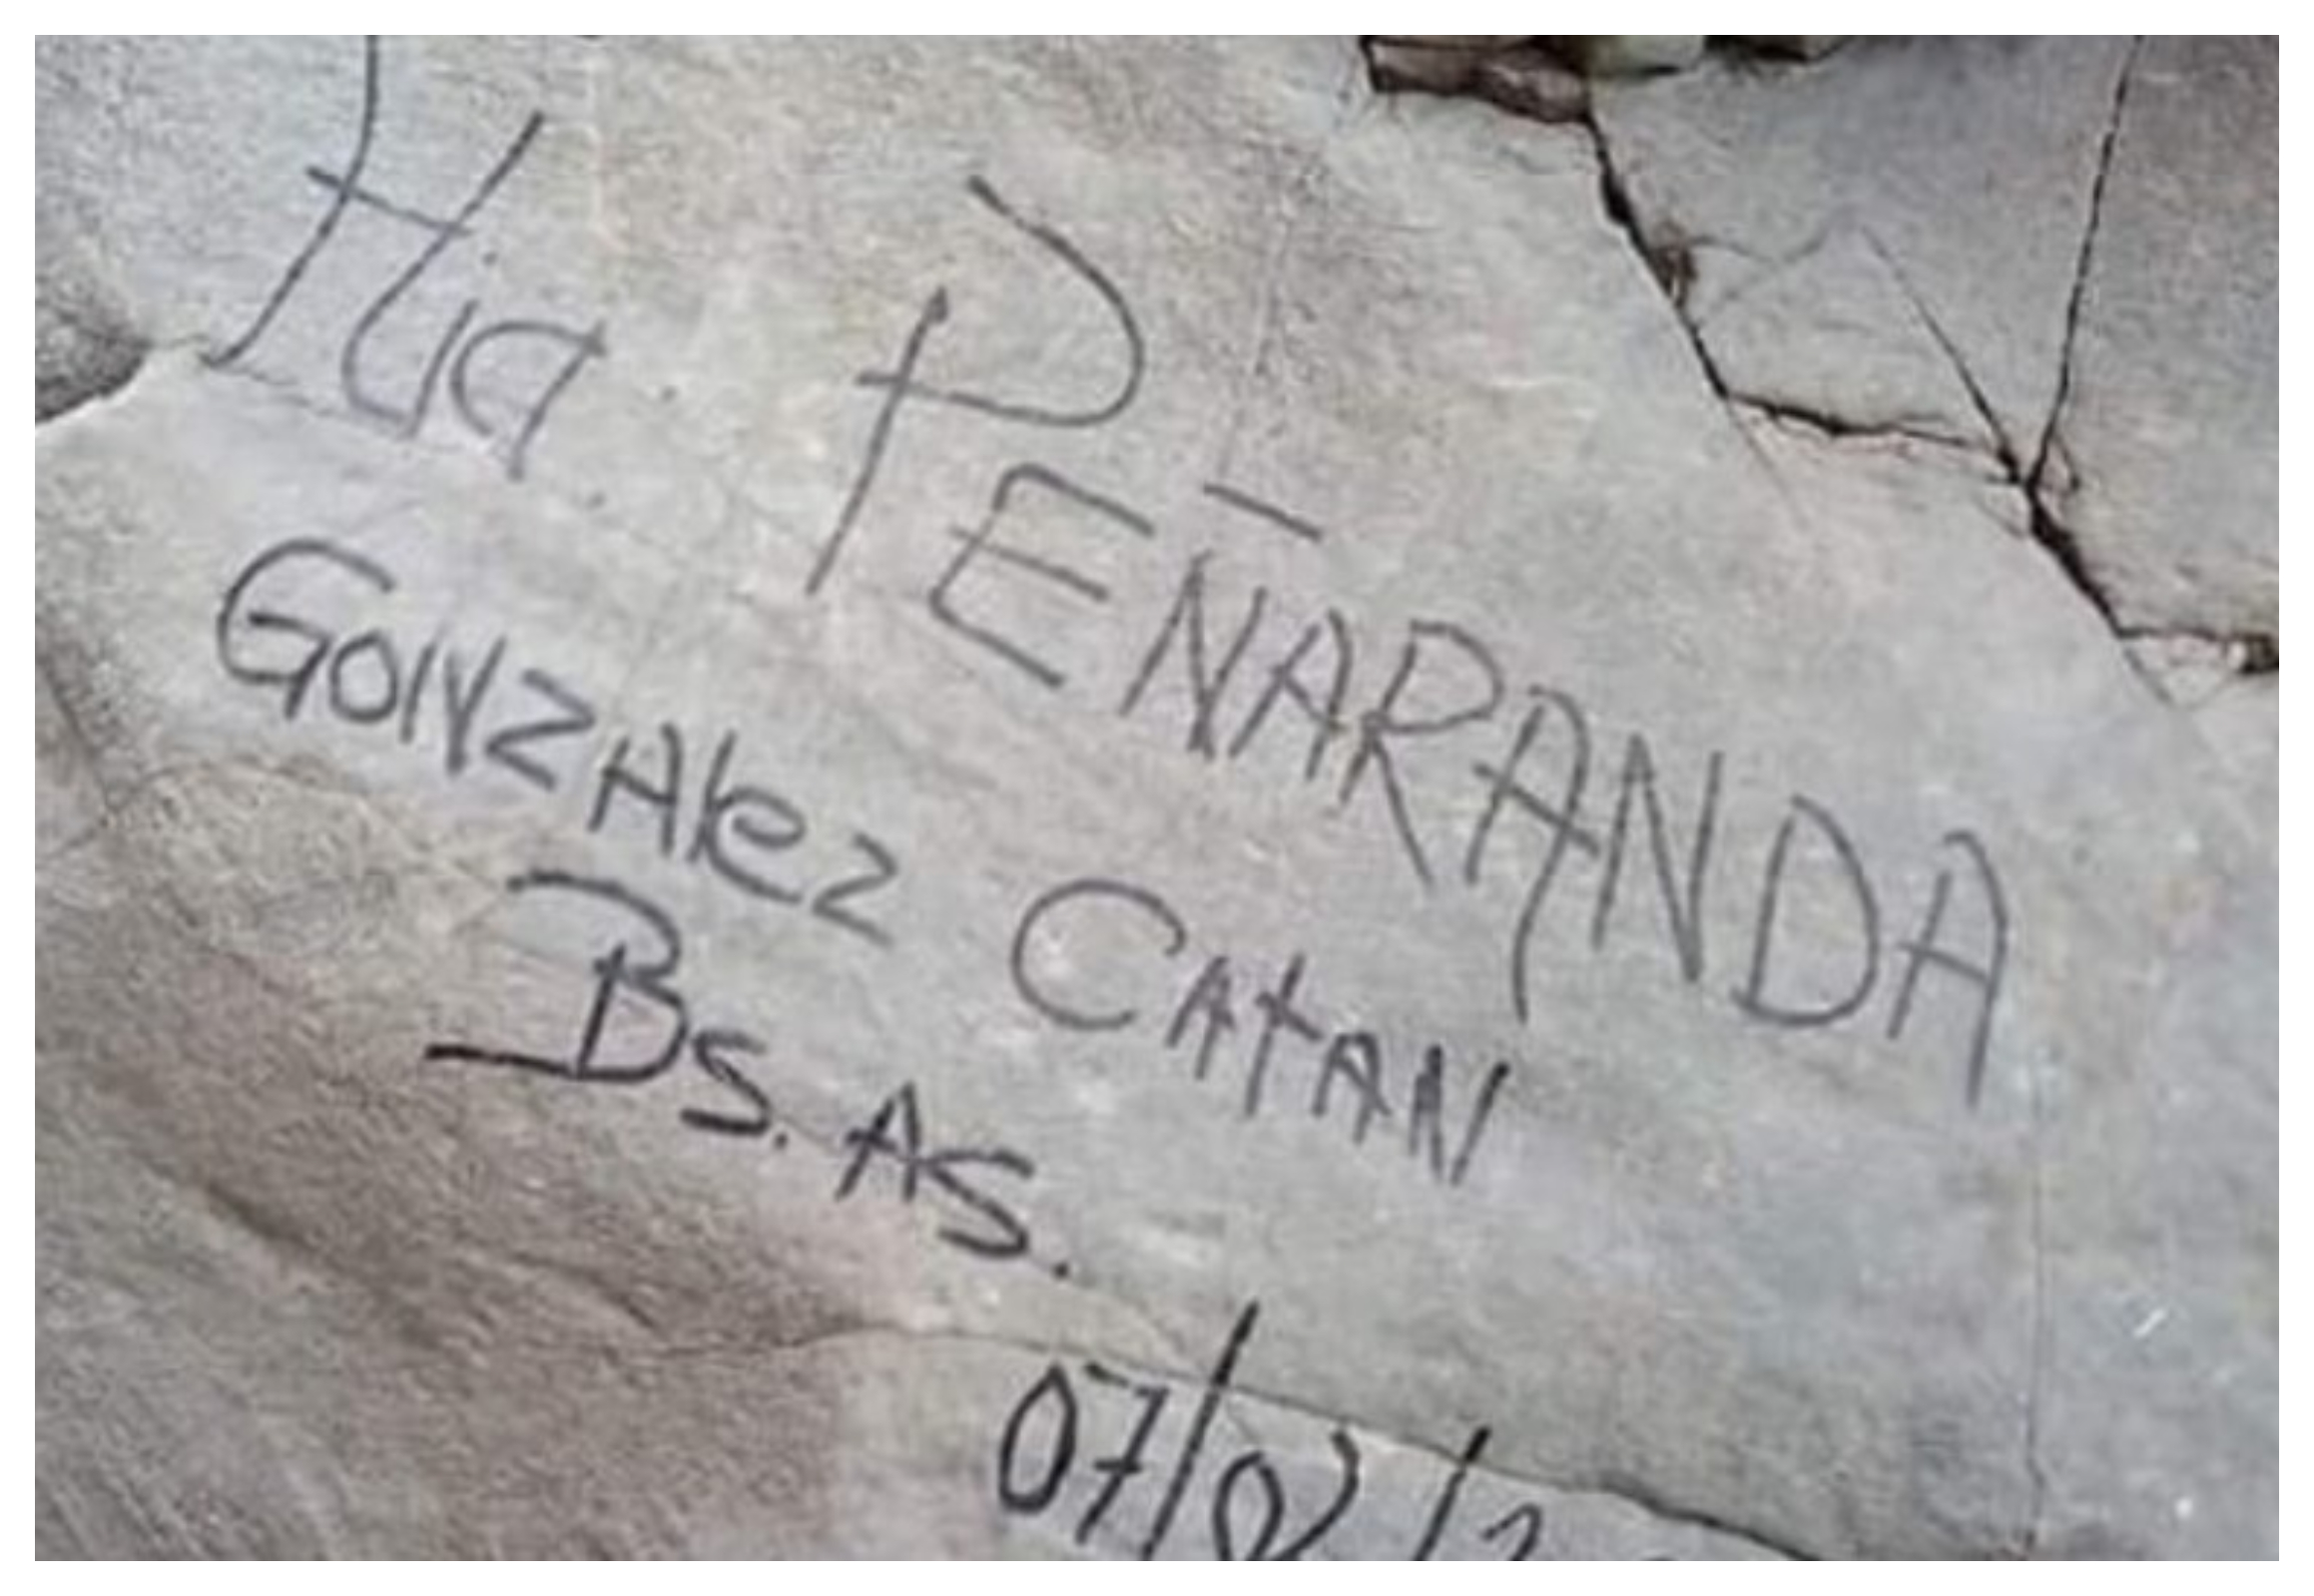 Flia. PEÑARANDA
GONZAlez CAtAN
Bs. As.
07/02/2